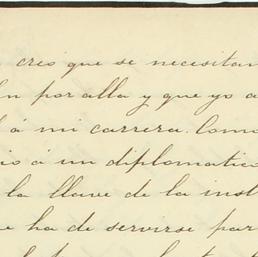 creo que se necesitan
por alla y que yo a
á mi carrera. Como
á un diplomatico
la llave de la inst
ha de servirse par